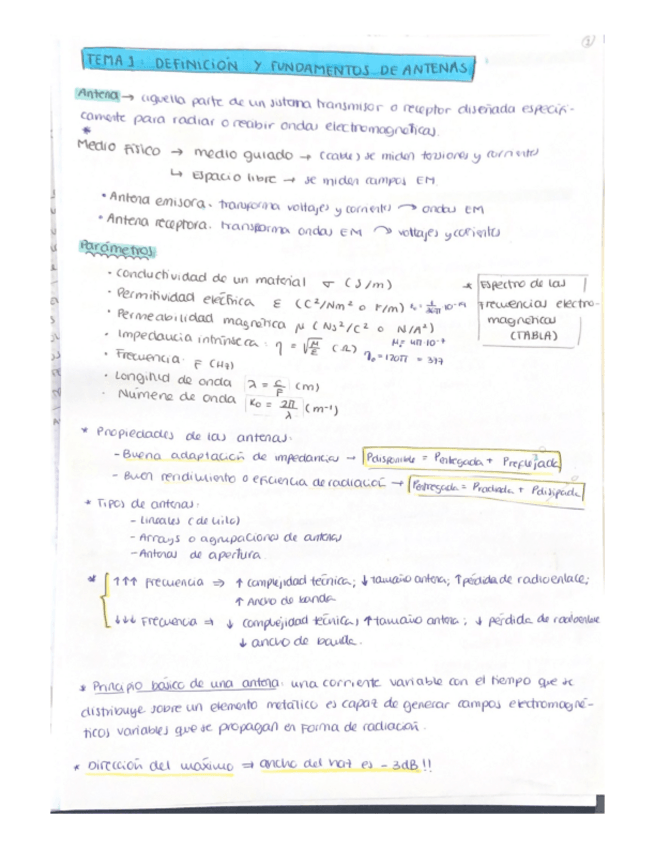 1
TEMA 1: DEFINICIÓN Y FUNDAMENTOS DE ANTENAS
Antena → aquella parte de un sistema transmisor o receptor diseñada específi-
camente para radiar o recibir ondas electromagnéticas.
*
Medio Físico → medio guiado → (cable) se miden tensiones y corrientes
↳ Espacio libre → se miden campos EM
• Antena emisora. transforma voltajes y corrientes → ondas EM
• Antena receptora. transforma ondas EM → voltajes y corrientes
Parámetros
• Conductividad de un material σ (S/m)
• Permitividad eléctrica ε (C²/Nm² o F/m)
• Permeabilidad magnética μ (Ns²/C² o N/A²)
• Impedancia intrínseca: η = √(μ/ε) (Ω) η₀ = 120π = 377
• Frecuencia. F (Hz)
• Longitud de onda λ = c/F (m)
• Número de onda K₀ = 2π/λ (m⁻¹)
* Espectro de las
frecuencias electro-
magnéticas
(TABLA)
* Propiedades de las antenas.
- Buena adaptación de impedancias → Pdisponible = Pentregada + Preflejada
- Buen rendimiento o eficiencia de radiación → Pentregada = Pradiada + Pdisipada
* Tipos de antenas:
- Lineales (de hilo)
- Arrays o agrupaciones de antenas
- Antenas de apertura
* ↑↑↑ Frecuencia ⇒ ↑ complejidad técnica; ↓ tamaño antena; ↑ pérdida de radioenlace;
↑ Ancho de banda
↓↓↓ Frecuencia ⇒ ↓ complejidad técnica; ↑ tamaño antena; ↓ pérdida de radioenlace
↓ ancho de banda.
* Principio básico de una antena: una corriente variable con el tiempo que se
distribuye sobre un elemento metálico es capaz de generar campos electromagné-
ticos variables que se propagan en forma de radiación.
* Dirección del máximo ⇒ ancho del haz es -3dB!!